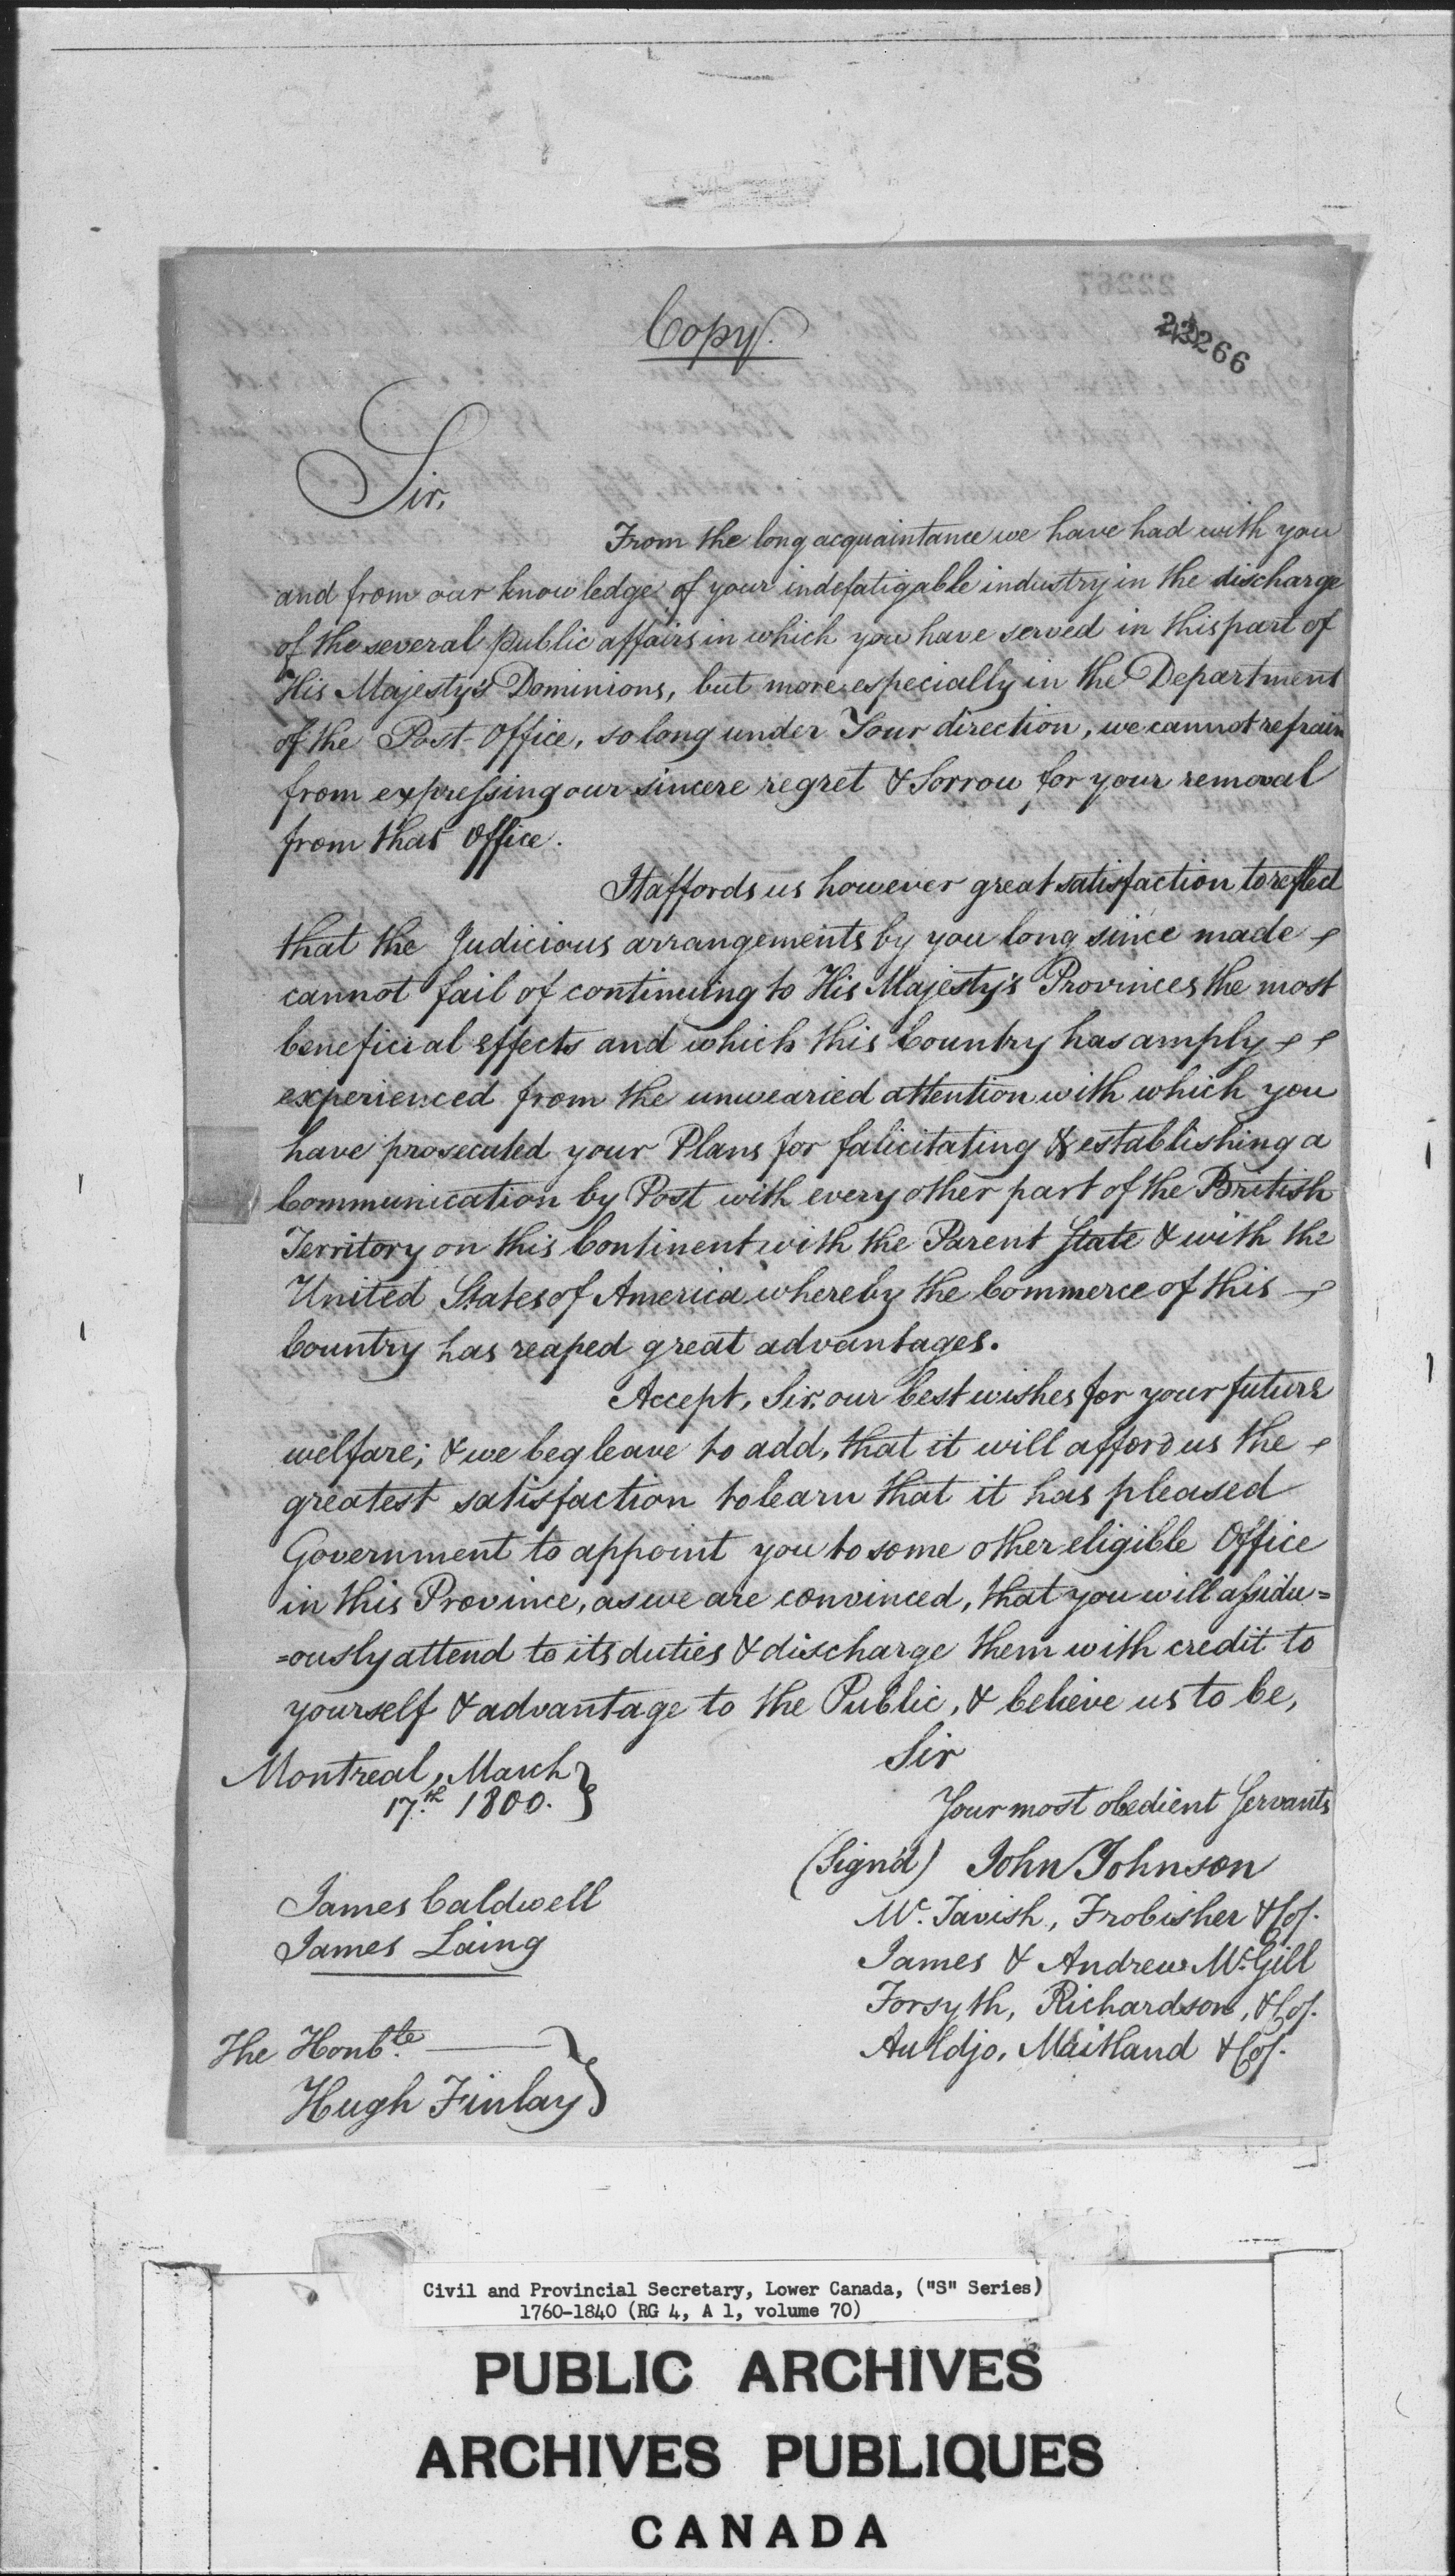 Copy.
22266
Sir,
From the long acquaintance we have had with you
and from our knowledge of your indefatigable industry in the discharge
of the several public affairs in which you have served in this part of
His Majesty's Dominions, but more especially in the Department
of the Post-Office, so long under Your direction, we cannot refrain
from expressing our sincere regret & Sorrow for your removal
from that Office.
It affords us however great satisfaction to reflect
that the Judicious arrangements by you long since made
cannot fail of continuing to His Majesty's Provinces the most
beneficial effects and which this Country has amply
experienced from the unwearied attention with which you
have prosecuted your Plans for falicitating & establishing a
Communication by Post with every other part of the British
Territory on this Continent with the Parent State & with the
United States of America whereby the Commerce of this
Country has reaped great advantages.
Accept, Sir, our best wishes for your future
welfare; & we beg leave to add, that it will afford us the
greatest satisfaction to learn that it has pleased
Government to appoint you to some other eligible Office
in this Province, as we are convinced, that you will assidu=
=ously attend to its duties & discharge them with credit to
yourself & advantage to the Public, & believe us to be,
Sir
Montreal, March
17.th 1800.
Your most obedient Servants
(Sign'd) John Johnson
Mc. Tavish, Frobisher & Co.
James & Andrew Mc.Gill
Forsyth, Richardson, & Co.
Auldjo, Maitland & Co.
James Caldwell
James Laing
The Honb.le
Hugh Finlay
Civil and Provincial Secretary, Lower Canada, ("S" Series)
1760-1840 (RG 4, A 1, volume 70)
PUBLIC ARCHIVES
ARCHIVES PUBLIQUES
CANADA